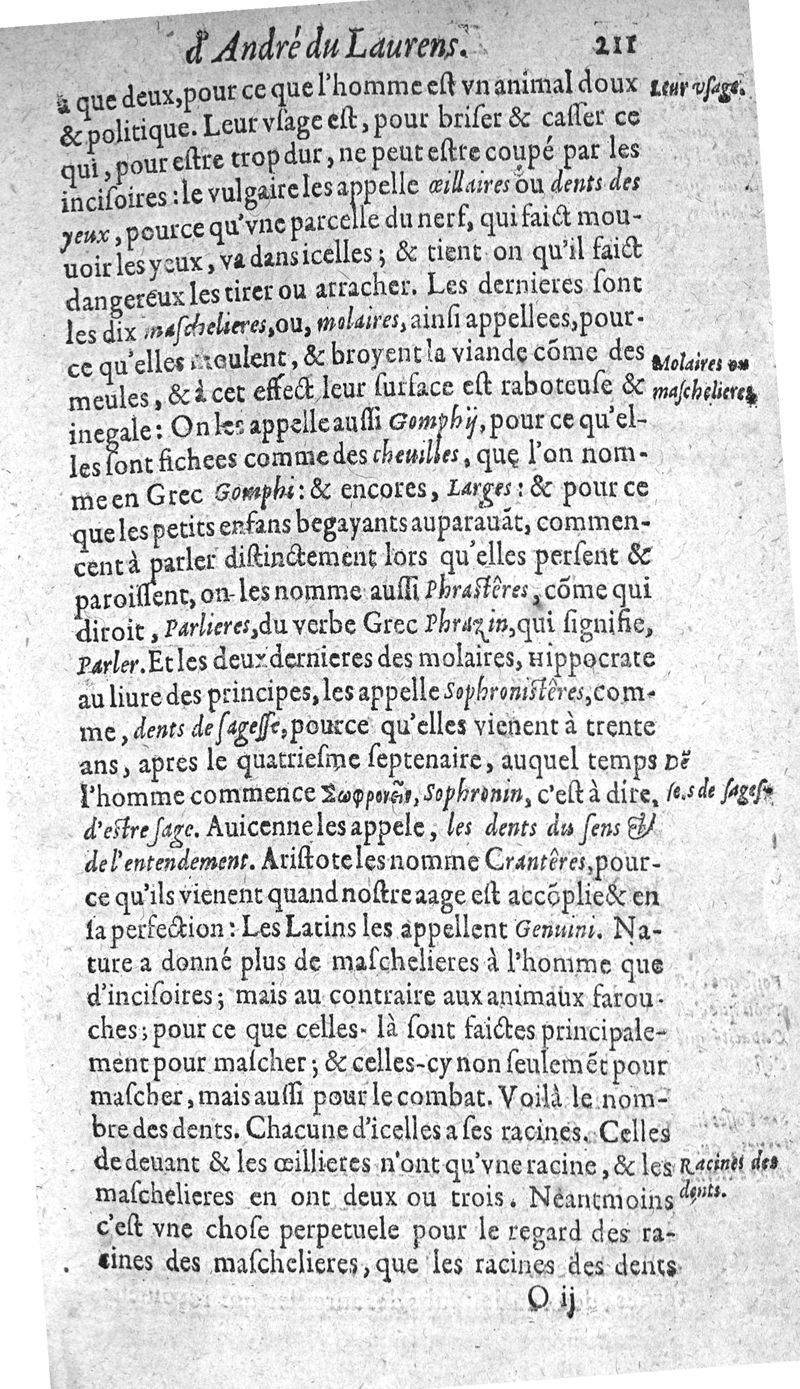 d'André du Laurens. 211
a que deux, pour ce que l'homme est vn animal doux
Leur vſage.
& politique. Leur vſage eſt, pour briſer & caſſer ce
qui, pour eſtre trop dur, ne peut eſtre coupé par les
inciſoires : le vulgaire les appelle œillaires ou dents des
yeux, pource qu'vne parcelle du nerf, qui faict mou-
uoir les yeux, va dans icelles ; & tient on qu'il faict
dangereux les tirer ou arracher. Les dernieres ſont
les dix maſchelieres, ou, molaires, ainſi appellees, pour-
ce qu'elles moulent, & broyent la viande cõme des
Molaires ou
meules, & à cet effect leur ſurface eſt raboteuſe &
maſchelieres,
inegale : On les appelle auſſi Gomphij, pour ce qu'el-
les ſont fichees comme des cheuilles, que l'on nom-
me en Grec Gomphi : & encores, Larges : & pour ce
que les petits enfans begayants auparauãt, commen-
cent à parler diſtinctement lors qu'elles perſent &
paroiſſent, on les nomme auſſi Phraſtêres, cõme qui
diroit, Parlieres, du verbe Grec Phrazin, qui ſignifie,
Parler. Et les deux dernieres des molaires, Hippocrate
au liure des principes, les appelle Sophroniſtêres, com-
me, dents de ſageſſe, pource qu'elles vienent à trente
ans, apres le quatrieſme ſeptenaire, auquel temps
Dẽ
l'homme commence Σωφρονεῖν, Sophronin, c'eſt à dire,
tes de ſageſ-
d'eſtre ſage. Auicenne les appele, les dents du ſens &
de l'entendement. Ariſtote les nomme Crantêres, pour-
ce qu'ils vienent quand noſtre aage eſt accõplie & en
ſa perfection : Les Latins les appellent Genuini. Na-
ture a donné plus de maſchelieres à l'homme que
d'inciſoires ; mais au contraire aux animaux farou-
ches ; pour ce que celles-là ſont faictes principale-
ment pour maſcher ; & celles-cy non ſeulemẽt pour
maſcher, mais auſſi pour le combat. Voilà le nom-
bre des dents. Chacune d'icelles a ſes racines. Celles
de deuant & les œillieres n'ont qu'vne racine, & les
Racines des
maſchelieres en ont deux ou trois. Neantmoins
dents.
c'eſt vne choſe perpetuele pour le regard des ra-
cines des maſchelieres, que les racines des dents
O ij